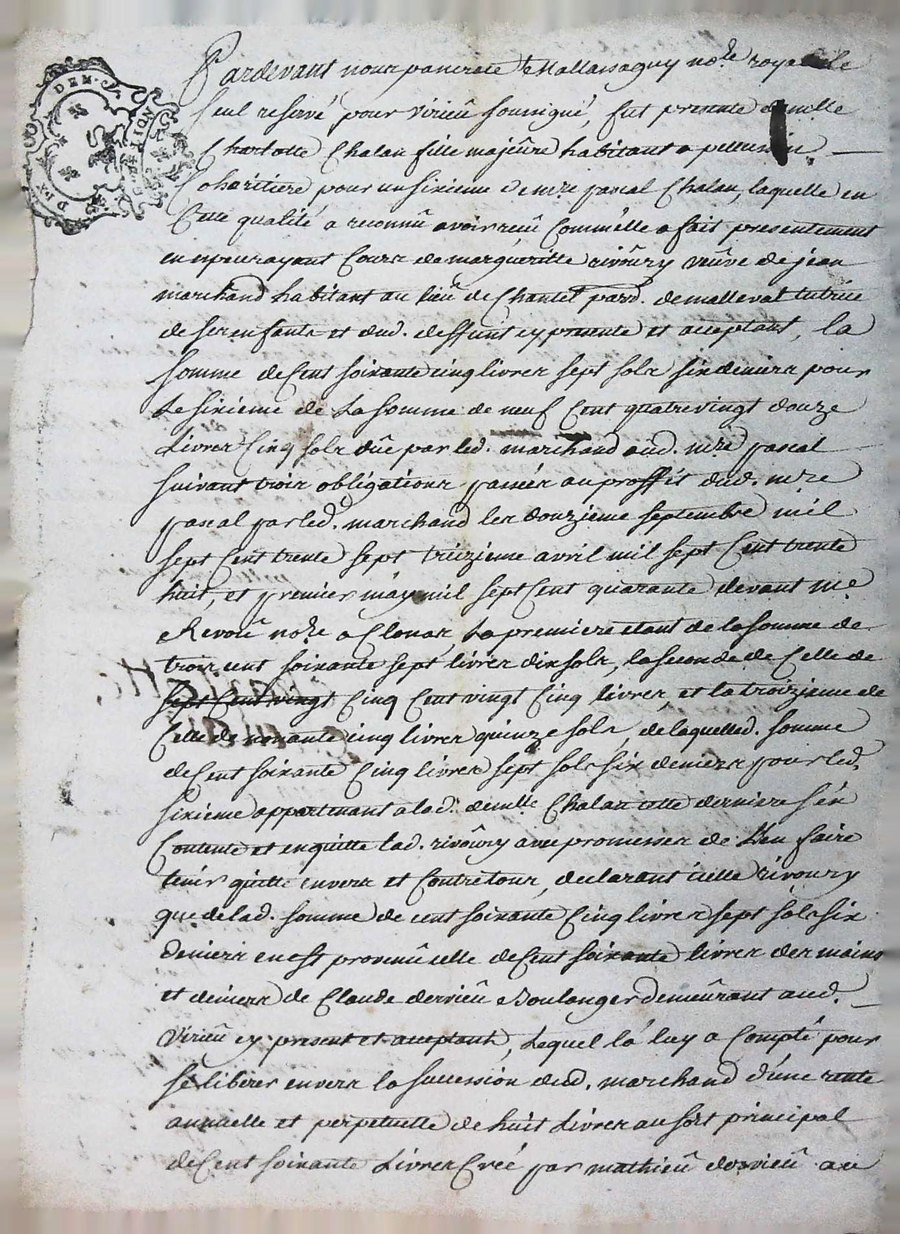 DEM.
NDIT
Pardevant nous pancrace de Mallassagny no.re royal
seul reservé pour virieü soussigné, fut presente d.elle
Charlotte Chalan fille majeüre habitant a pellussin
Cohæritiere pour un sixieme de m.re pascal Chalan, laquelle en
Cette qualité a reconnû avoir reçû Comm'elle a fait presentement
en especes ayant Cours de margueritte rivoury veûve de jean
marchand habitant au lieû de Chantel parr. de malleval tutrice
de ses enfants et dud. deffunt icy presente et acceptant, la
somme de Cent soixante cinq livres sept sols six deniers pour
Le sixieme de La somme de neuf Cent quatre vingt douze
Livres Cinq sols düe par led. marchand aud. m.re pascal
suivant trois obligations passées au proffit dud. m.re
pascal par led. marchand les douzieme septembre mil
sept Cent trente sept treizieme avril mil sept Cent trente
huit, et premier may mil sept Cent quarante devant m.e
no.re a La premiere etant de la somme de
trois cent soixante sept livres dix sols, la seconde de Celle de
sept Cent vingt Cinq Cent vingt Cinq livres et la troizieme de
Celle de nonante cinq livres quinze sols, de laquelled. somme
de Cent soixante Cinq livres sept sols six deniers pour led.
sixieme appartenant a lad. demlle Chalan cette derniere s'en
Contente et en quitte lad. rivoury avec promesses de L'en faire
tenir quitte envers et Contre tous, declarant icelle rivoury
que de lad. somme de cent soixante Cinq livres sept sols six
deniers en est provenû celle de Cent soixante livres des mains
et deniers de Claude dervieü Boulanger demeûrant aud.
Virieü icy present et acceptant, Lequel la luy a Compté pour
se liberer envers la succession dud. marchand d'une rente
annuelle et perpetuelle de huit Livres au sort principal
de Cent soixante Livres Créé par mathieü dervieü au